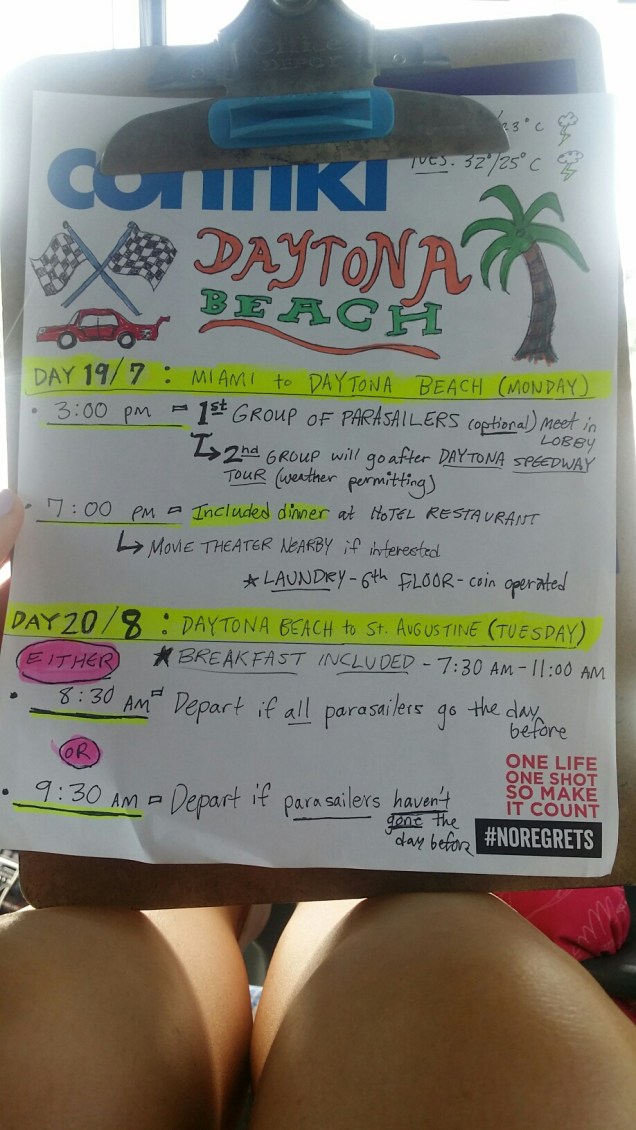 contiki
23°C
TUES. 32°/25°C
DAYTONA
BEACH
DAY 19/7 : MIAMI to DAYTONA BEACH (MONDAY)
• 3:00 pm = 1st GROUP OF PARASAILERS (optional) Meet in
LOBBY
↳ 2nd GROUP will go after DAYTONA SPEEDWAY
TOUR (weather permitting)
• 7:00 pm = Included dinner at HOTEL RESTAURANT
↳ MOVIE THEATER NEARBY if interested
* LAUNDRY - 6th FLOOR - coin operated
DAY 20/8 : DAYTONA BEACH to St. AUGUSTINE (TUESDAY)
EITHER * BREAKFAST INCLUDED - 7:30 AM - 11:00 AM
• 8:30 AM = Depart if all parasailers go the day
before
OR
• 9:30 AM = Depart if parasailers haven't
gone the
day before
ONE LIFE
ONE SHOT
SO MAKE
IT COUNT
#NOREGRETS